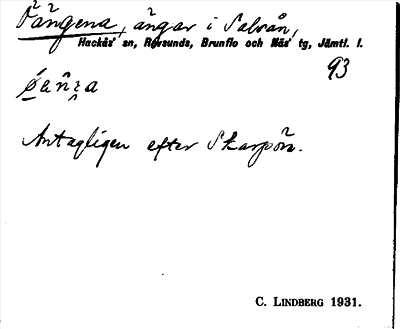 ängar i Salvån,
Hackås' sn, Revsunds, Brunflo och Näs' tg, Jämtl. l.
93
Antagligen efter Skarpön.
C. LINDBERG 1931.